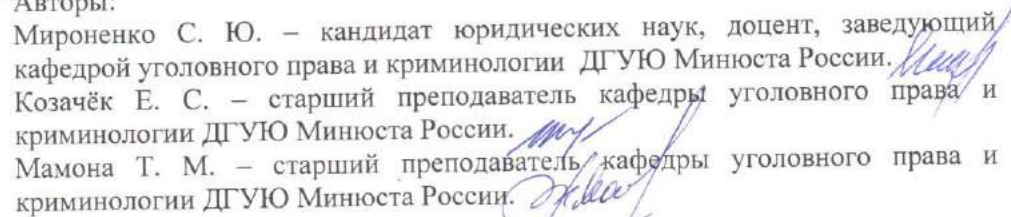 Авторы:
Мироненко С. Ю. – кандидат юридических наук, доцент, заведующий
кафедрой уголовного права и криминологии ДГУЮ Минюста России.
Козачёк Е. С. – старший преподаватель кафедры уголовного права и
криминологии ДГУЮ Минюста России.
Мамона Т. М. – старший преподаватель кафедры уголовного права и
криминологии ДГУЮ Минюста России.